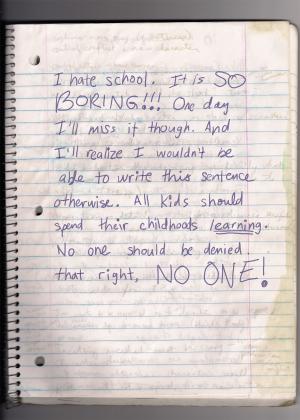 I hate school. It is SO
BORING!!! One day
I'll miss if though. And
I'll realize I wouldn't be
able to write this sentence
otherwise. All Kids should
spend their childhoods learning.
No one should be denied
that right, NO ONE!